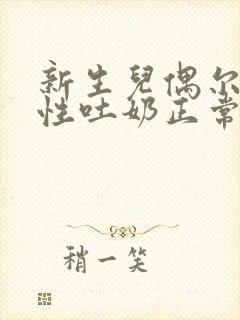 新生兒偶尔
性吐奶正常
稍一笑